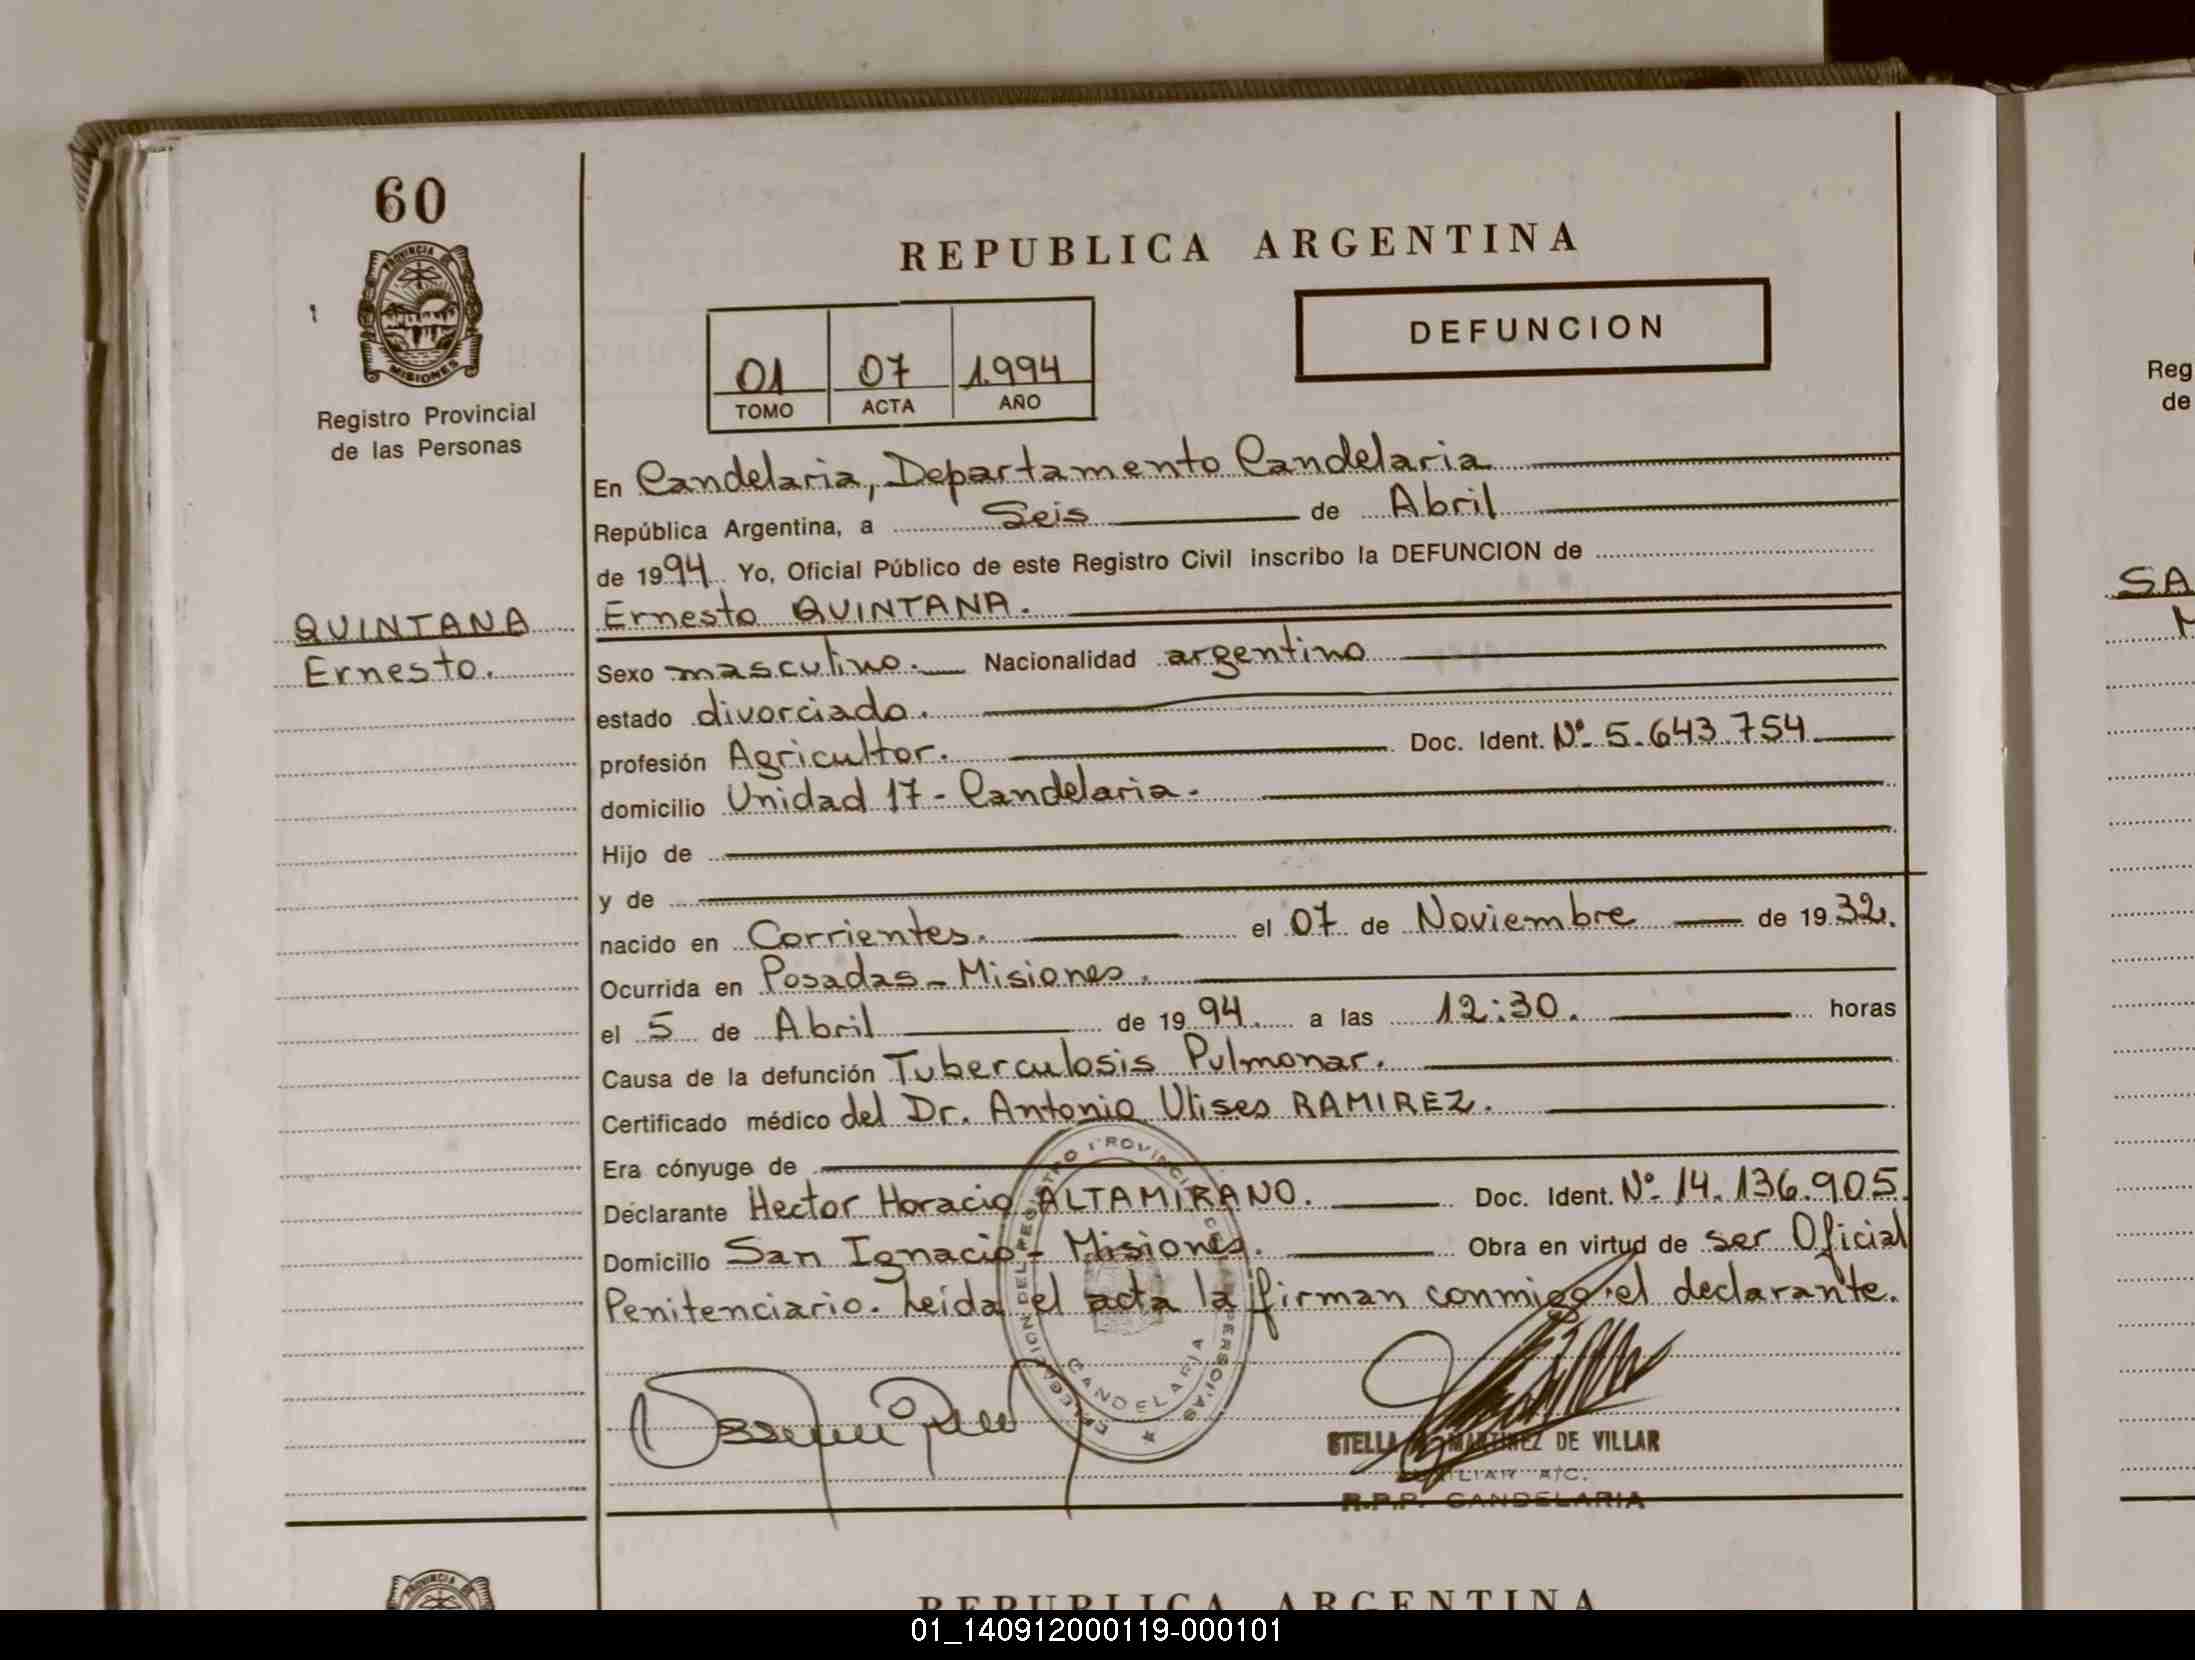 60
PROVINCIA DE
MISIONES
Registro Provincial
de las Personas
QUINTANA
Ernesto.
REPUBLICA ARGENTINA
DEFUNCION
01 07 1.994
TOMO ACTA AÑO
En Candelaria, Departamento Candelaria
República Argentina, a Seis de Abril
de 1994 Yo, Oficial Público de este Registro Civil inscribo la DEFUNCION de
Ernesto QUINTANA.
Sexo masculino. Nacionalidad argentino
estado divorciado.
profesión Agricultor. Doc. Ident. Nº 5.643.754
domicilio Unidad 17 - Candelaria.
Hijo de
y de
nacido en Corrientes. el 07 de Noviembre de 1932.
Ocurrida en Posadas - Misiones.
el 5 de Abril de 1994. a las 12:30. horas
Causa de la defunción Tuberculosis Pulmonar.
Certificado médico del Dr. Antonio Ulises RAMIREZ.
Era cónyuge de
Declarante Hector Horacio ALTAMIRANO. Doc. Ident. Nº 14.136.905.
Domicilio San Ignacio - Misiones. Obra en virtud de ser Oficial
Penitenciario. Leida el acta la firman conmigo el declarante.
DELEGACION DEL REGISTRO PROVINCIAL DE LAS PERSONAS
CANDELARIA
STELLA MARTINEZ DE VILLAR
AUXILIAR A/C.
R.P.P. CANDELARIA
REPUBLICA ARGENTINA
Reg
de
SA
M
01_140912000119-000101